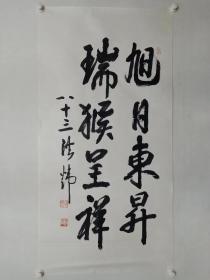 旭日東昇
瑞猴呈祥
八十三